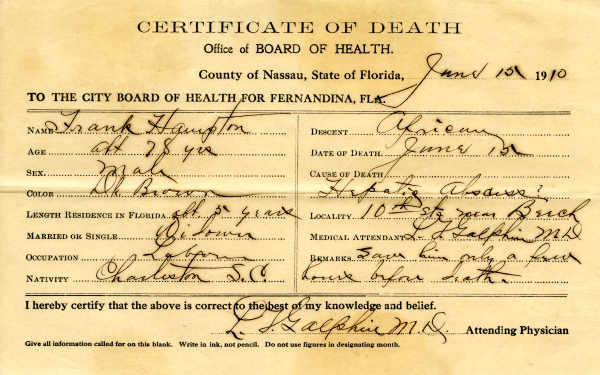 CERTIFICATE OF DEATH
Office of BOARD OF HEALTH.
County of Nassau, State of Florida, June 15 1910
TO THE CITY BOARD OF HEALTH FOR FERNANDINA, FLA.
NAME Frank Hampton
AGE abt 78 yrs
SEX Male
COLOR Dk Brown
LENGTH RESIDENCE IN FLORIDA abt 5 years
MARRIED OR SINGLE Widower
OCCUPATION Laborer
NATIVITY Charleston S.C.
DESCENT African
DATE OF DEATH June 15
CAUSE OF DEATH
Hepatic Abscess?
LOCALITY 10th St near Beech
MEDICAL ATTENDANT L. Galphin M.D
REMARKS Saw him only a few
hours before death.
I hereby certify that the above is correct to the best of my knowledge and belief.
Galphin M.D. Attending Physician
Give all information called for on this blank. Write in ink, not pencil. Do not use figures in designating month.